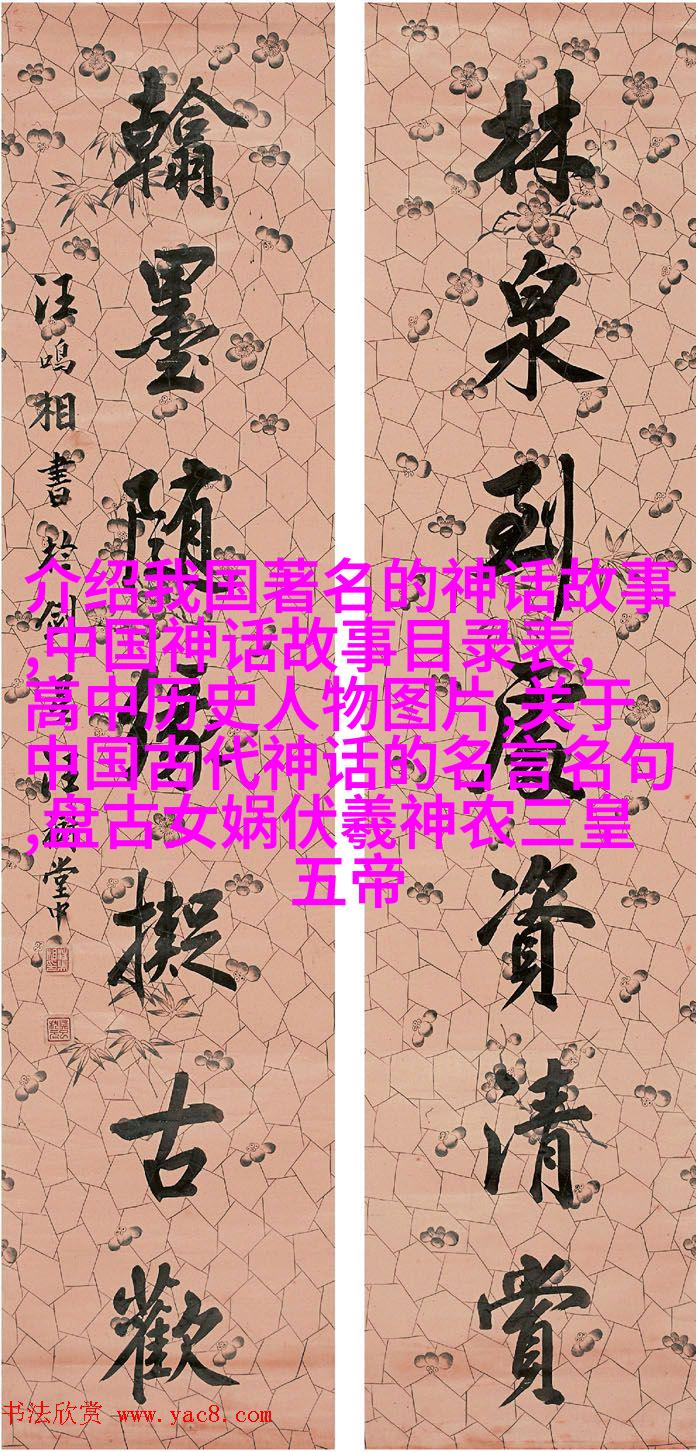 林泉到處資清賞
翰墨隨緣擬古歡
汪鳴相書於劍
堂中
介绍我国著名的神话故事
,中国神话故事目录表,
高中历史人物图片,关于
中国古代神话的名言名句
,盘古女娲伏羲神农三皇
五帝
书法欣赏 www.yac8.com